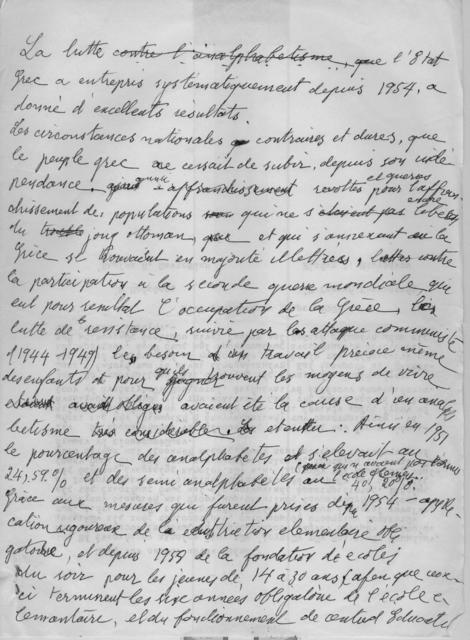 La lutte contre l'analphabetisme, que l'Etat
Grec a entrepris systématiquement depuis 1954, a
donné d'excellents résultats.
Les circonstances nationales contraires et dures, que
le peuple grec ne cessait de subir, depuis son indé
pendance, affranchissement revoltes et guerres pour l'affran-
chissement des populations qui ne s'étaient pas
du joug ottoman, et qui s'annexant à la
Grèce se trouvaient en majorité illettrées, luttes contre
la participation à la seconde guerre mondiale qui
eut pour resultat l'occupation de la Grèce, la
lutte de resistance, suivie par les attaque communiste
(1944-1949) le besoin d'un travail précoce même
des enfants et pour qu'ils trouvent les moyens de vivre
avaient été la cause d'un analpha
betisme considerable. Ainsi en 1951
le pourcentage des analphabètes s'elevait au
24,59% et des semianalphabètes au
Grâce aux mesures qui furent prises depuis 1954 - appli-
cation rigoureux de instruction elementaire obli
gatoire, et depuis 1959 de la fondation de ecoles
du soir pour les jeunes de 14 à 30 ans, afin que ceux-
ci terminent les six années obligatoire de l'école e
lementaire, et du fonctionnement de centres Educatif